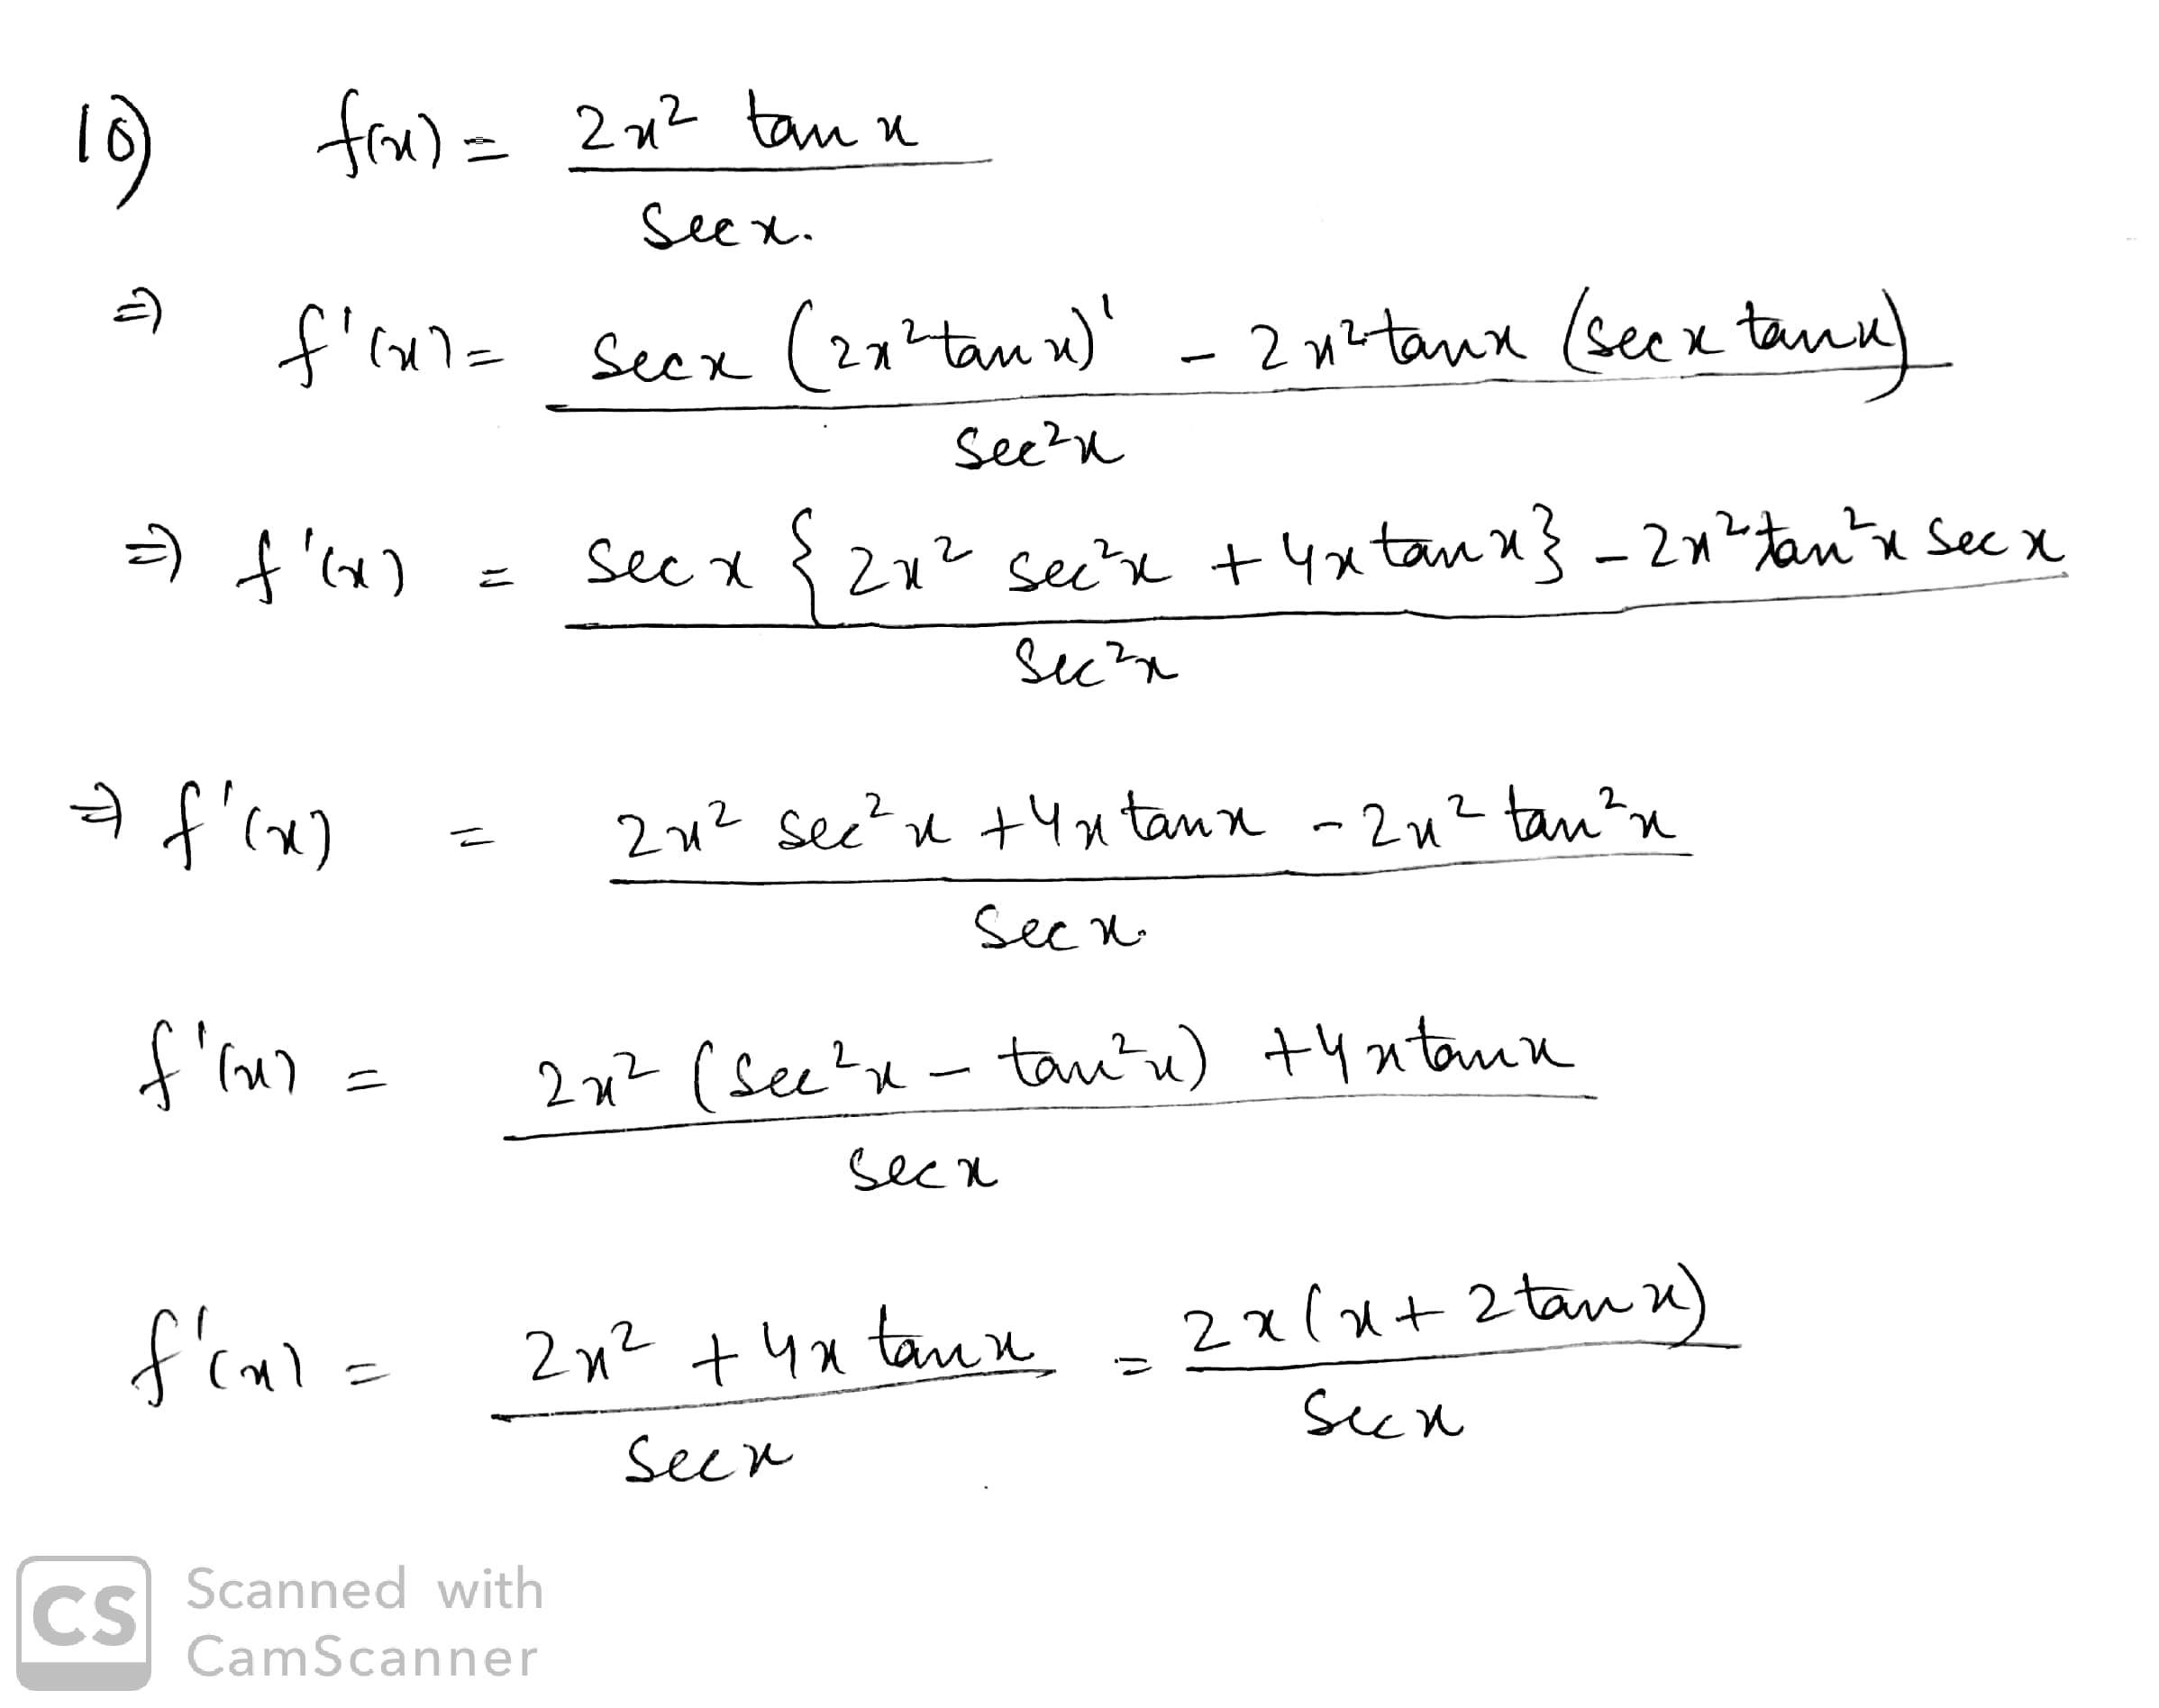 10) f(x) = 2x² tan x / sec x.
⇒ f'(x) = sec x (2x² tan x)' - 2x² tan x (sec x tan x) / sec² x
⇒ f'(x) = sec x { 2x² sec² x + 4x tan x } - 2x² tan² x sec x / sec² x
⇒ f'(x) = 2x² sec² x + 4x tan x - 2x² tan² x / sec x.
f'(x) = 2x² (sec² x - tan² x) + 4x tan x / sec x
f'(x) = 2x² + 4x tan x / sec x = 2x (x + 2 tan x) / sec x
CS Scanned with
CamScanner